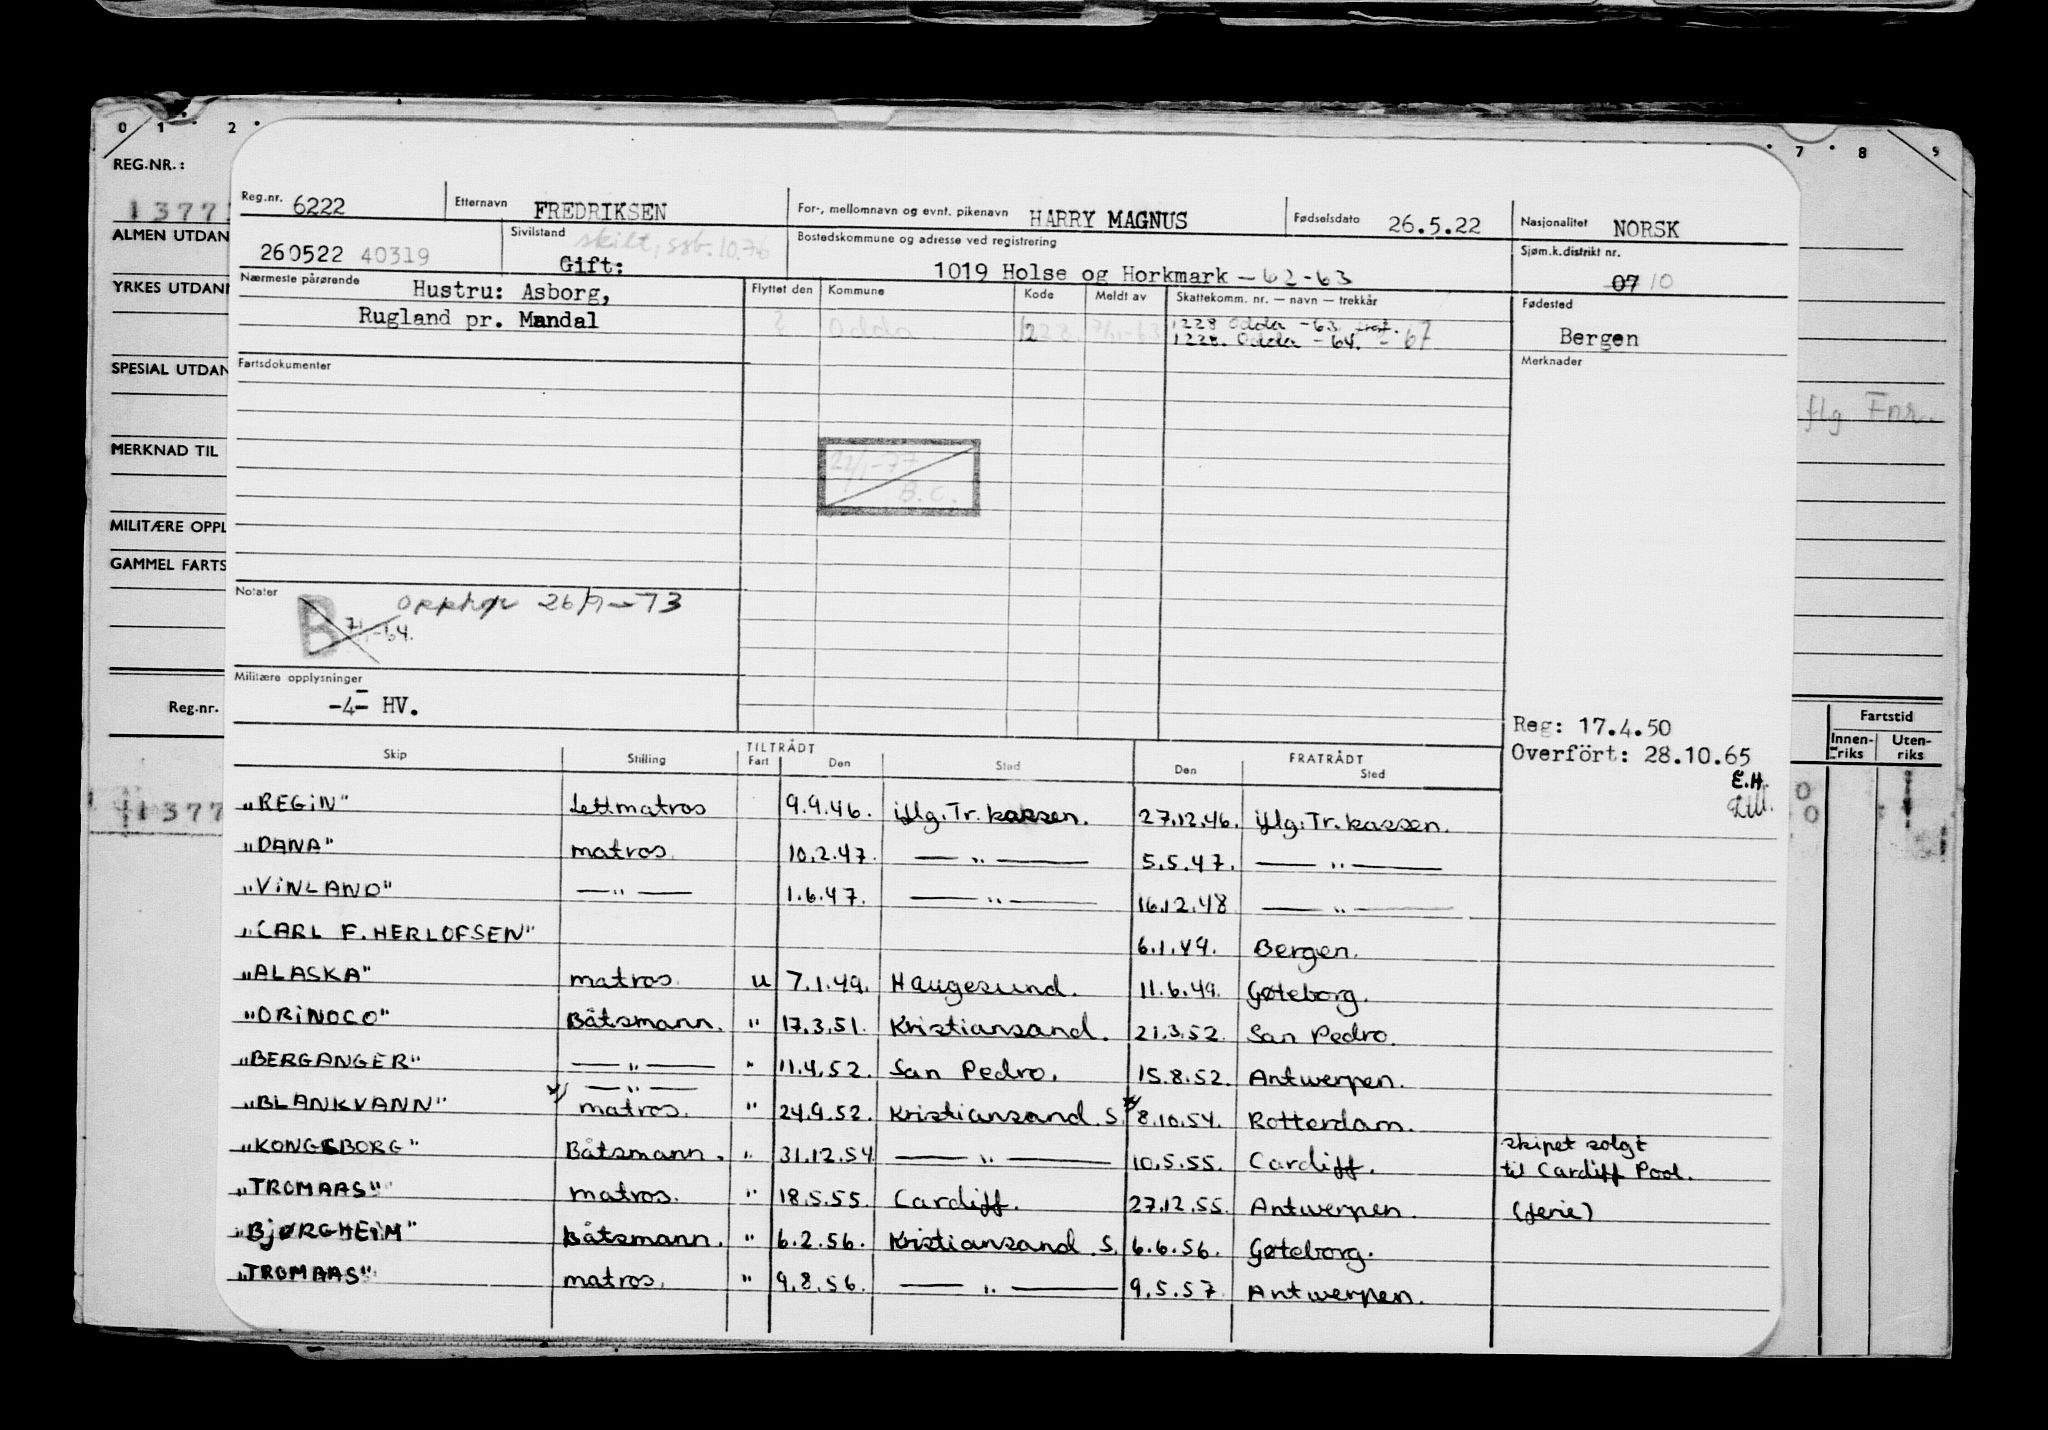 0 1 2 7 8 9
REG.NR.:
1377
ALMEN UTDAN
YRKES UTDAN
SPESIAL UTDAN
MERKNAD TIL
MILITÆRE OPPL
GAMMEL FARTS
Reg.nr.
1377
flg Fnr.
Fartstid
Innen-riks Uten-riks
Reg.nr. 6222 Etternavn FREDRIKSEN For-, mellomnavn og evnt. pikenavn HARRY MAGNUS Fødselsdato 26.5.22 Nasjonalitet NORSK
260522 40319 Sivilstand skilt, ssb. 10.76 Gift: Bostedskommune og adresse ved registrering 1019 Holse og Horkmark - 62-63 Sjøm.k.distrikt nr. 07 10
Nærmeste pårørende Hustru: Asborg,
Rugland pr. Mandal
Flyttet den Kommune Kode Meldt av Skattekomm. nr. — navn — trekkår Fødested
? Odda 1228 7/1-63 1228 Odda -63
1228. Odda - 64. - 67
Bergen
Fartsdokumenter
Merknader
22/1-77
B.C.
Notater
B 7/1-64. Opphør 26/9-73
Militære opplysninger
-4- HV.
Reg: 17.4.50
Overført: 28.10.65
E.H.
Skip Stilling TILTRÅDT Fart Den Sted FRATRÅDT Den Sted
"REGIN" Lettmatros 9.9.46. iflg. Tr. kassen. 27.12.46. iflg. Tr. kassen.
"DANA" matros 10.2.47. — " — 5.5.47. — " —
"VINLAND" — " — 1.6.47. — " — 16.12.48 — " —
"CARL F. HERLOFSEN" 6.1.49. Bergen.
"ALASKA" matros. u 7.1.49. Haugesund. 11.6.49. Gøteborg.
"ORINOCO" Båtsmann. " 17.3.51. Kristiansand. 21.3.52. San Pedro.
"BERGANGER" — " — " 11.4.52. San Pedro. 15.8.52. Antwerpen.
— " —
"BLANKVANN" x/ matros. " 24.9.52. Kristiansand S. x/ 8.10.54. Rotterdam.
"KONGSBORG" Båtsmann. " 31.12.54 — " — 10.5.55. Cardiff. skipet solgt
til Cardiff Pool.
"TROMAAS" matros. " 18.5.55. Cardiff. 27.12.55. Antwerpen. (ferie)
"BJØRGHEIM" Båtsmann. " 6.2.56. Kristiansand S. 6.6.56. Gøteborg.
"TROMAAS" matros. " 9.8.56. — " — 9.5.57. Antwerpen.